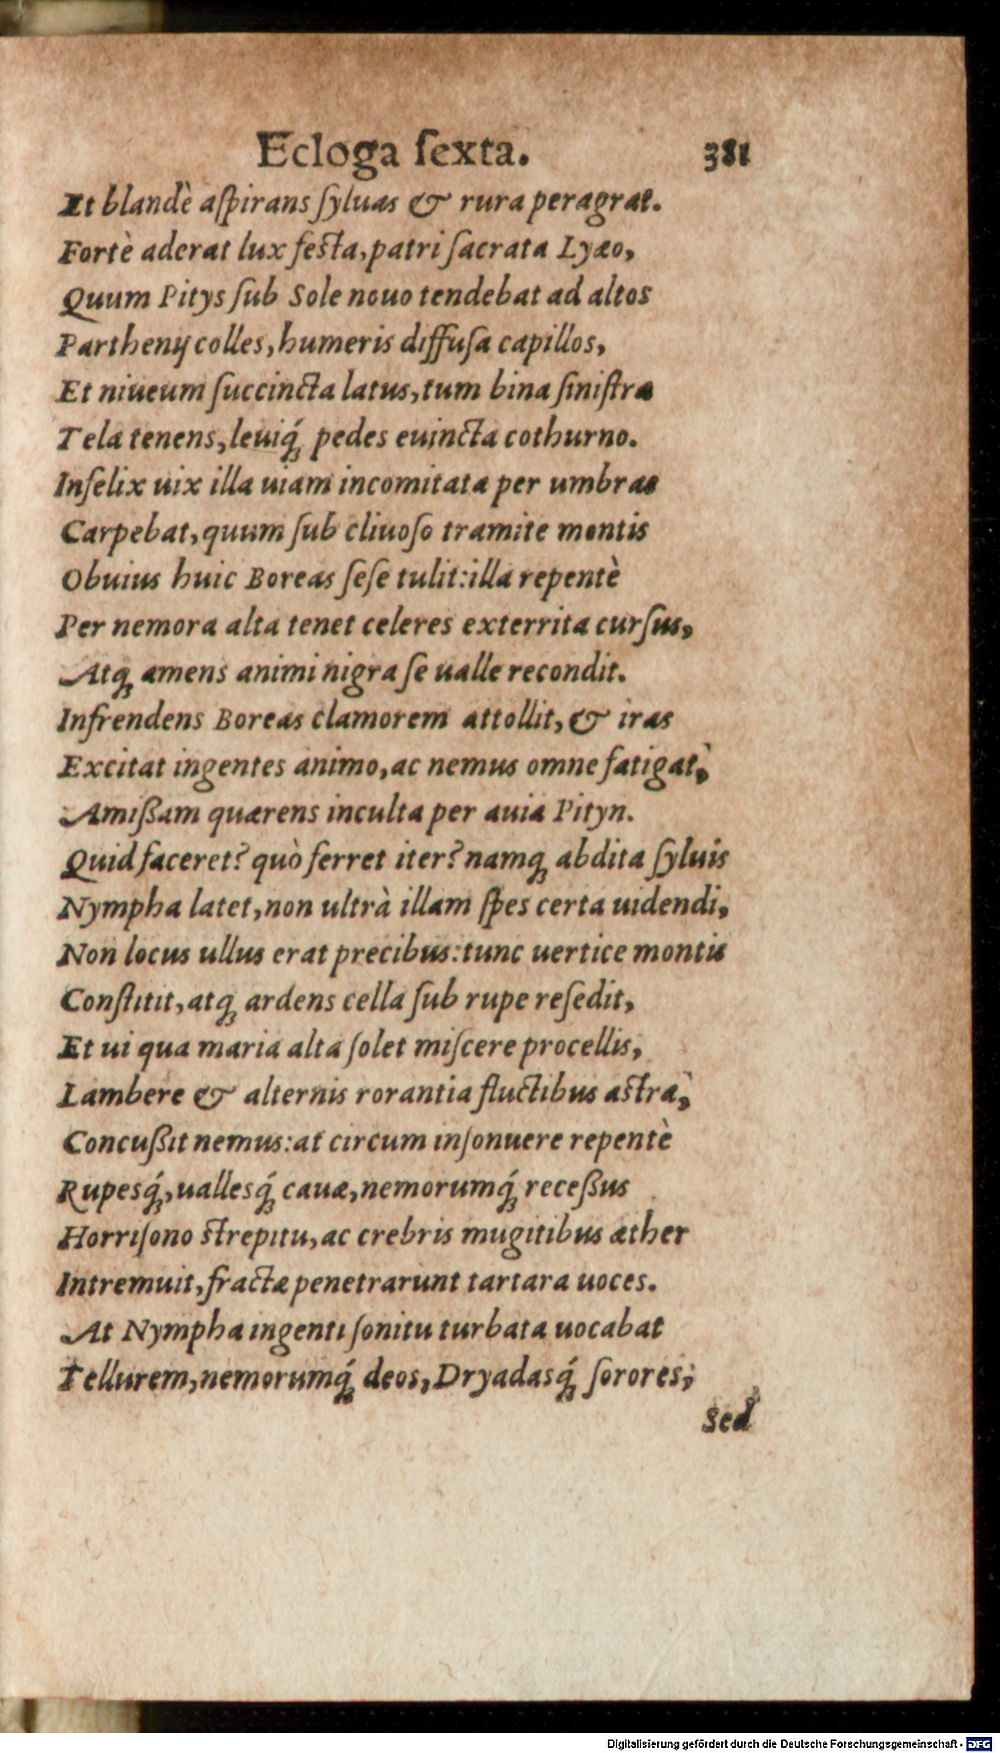 Ecloga ſexta. 381
Et blandè aſpirans ſyluas & rura peragrat.
Fortè aderat lux feſta, patri ſacrata Lyæo,
Quum Pitys ſub Sole nouo tendebat ad altos
Parthenij colles, humeris diffuſa capillos,
Et niueum ſuccincta latus, tum bina ſiniſtra
Tela tenens, leuiq́ꝫ pedes euincta cothurno.
Infelix uix illa uiam incomitata per umbras
Carpebat, quum ſub cliuoſo tramite montis
Obuius huic Boreas ſeſe tulit: illa repentè
Per nemora alta tenet celeres exterrita curſus,
Atqꝫ amens animi nigra ſe ualle recondit.
Infrendens Boreas clamorem attollit, & iras
Excitat ingentes animo, ac nemus omne fatigat,
Amißam quærens inculta per auia Pityn.
Quid faceret? quò ferret iter? namqꝫ abdita ſyluis
Nympha latet, non ultrà illam ſpes certa uidendi,
Non locus ullus erat precibus: tunc uertice montis
Conſtitit, atqꝫ ardens cella ſub rupe reſedit,
Et ui qua maria alta ſolet miſcere procellis,
Lambere & alternis rorantia fluctibus aſtra,
Concußit nemus: at circum inſonuere repentè
Rupesq́ꝫ, uallesq́ꝫ cauæ, nemorumq́ꝫ receßus
Horriſono ſtrepitu, ac crebris mugitibus æther
Intremuit, fractæ penetrarunt tartara uoces.
At Nympha ingenti ſonitu turbata uocabat
Tellurem, nemorumq́ꝫ deos, Dryadasq́ꝫ ſorores;
Sed
Digitalisierung gefördert durch die Deutsche Forschungsgemeinschaft - DFG